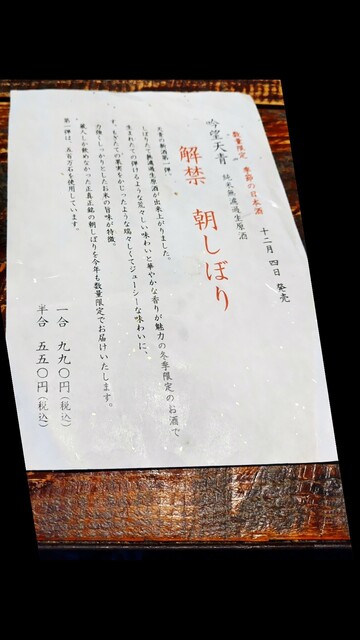 数量限定 季節の日本酒
十二月四日発売
吟望天青 純米無濾過生原酒
解禁 朝しぼり
天青の新酒第一弾、
しぼりたて無濾過生原酒が出来上がりました。
生まれたての弾けるような荒々しい味わいと華やかな香りが魅力の冬季限定のお酒で
す。もぎたての果実をかじったような瑞々しくてジューシーな味わいに、
力強くしっかりとしたお米の旨味が特徴。
蔵人しか飲めなかった正真正銘の朝しぼりを今年も数量限定でお届けいたします。
第一弾は、五百万石を使用しています。
一合 九九〇円(税込)
半合 五五〇円(税込)